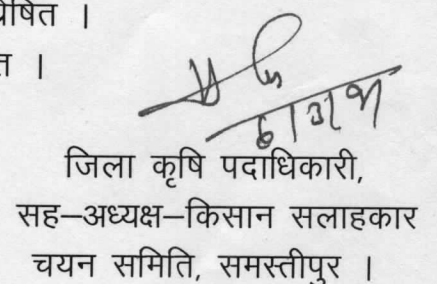 प्रेषित ।
त ।
जिला कृषि पदाधिकारी,
सह–अध्यक्ष–किसान सलाहकार
चयन समिति, समस्तीपुर ।